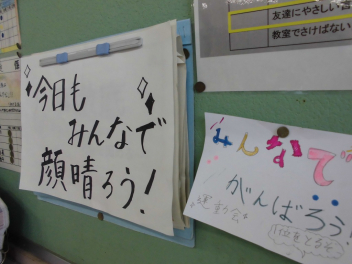 今日も
みんなで
顔晴ろう!
友達にやさしい言
教室でさけばない
みんなで
がんばろう!
運動会